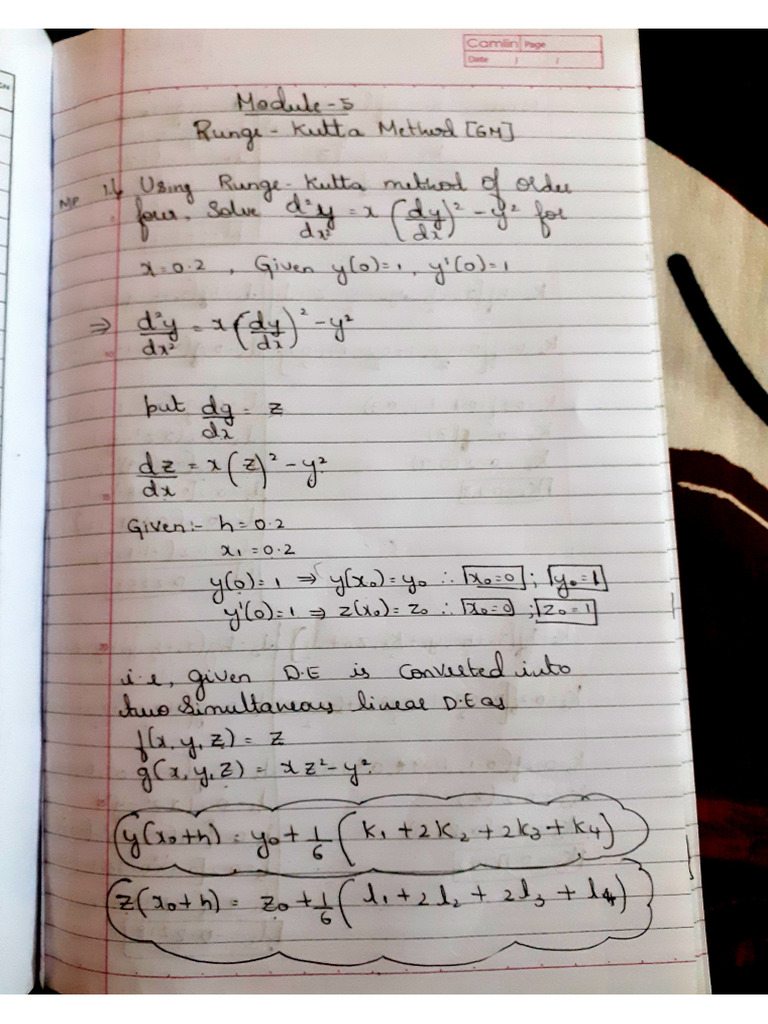 Camlin Page
Date / /
Module-5
Runge-Kutta Method [6M]
MP 1.) Using Runge-Kutta method of order
four, Solve d²y/dx² = x(dy/dx)² - y² for
x=0.2, Given y(0)=1, y'(0)=1
⇒ d²y/dx² = x(dy/dx)² - y²
put dy/dx = z
dz/dx = x(z)² - y²
Given:- h=0.2
x₁=0.2
y(0)=1 ⇒ y(x₀)=y₀ ∴ x₀=0 ; y₀=1
y'(0)=1 ⇒ z(x₀)=z₀ ∴ x₀=0 ; z₀=1
i.e, given D.E is Converted into
two Simultaneous linear D.E as
f(x,y,z) = z
g(x,y,z) = xz²-y²
y(x₀+h) = y₀+1/6(K₁+2K₂+2K₃+K₄)
z(x₀+h) = z₀+1/6(l₁+2l₂+2l₃+l₄)